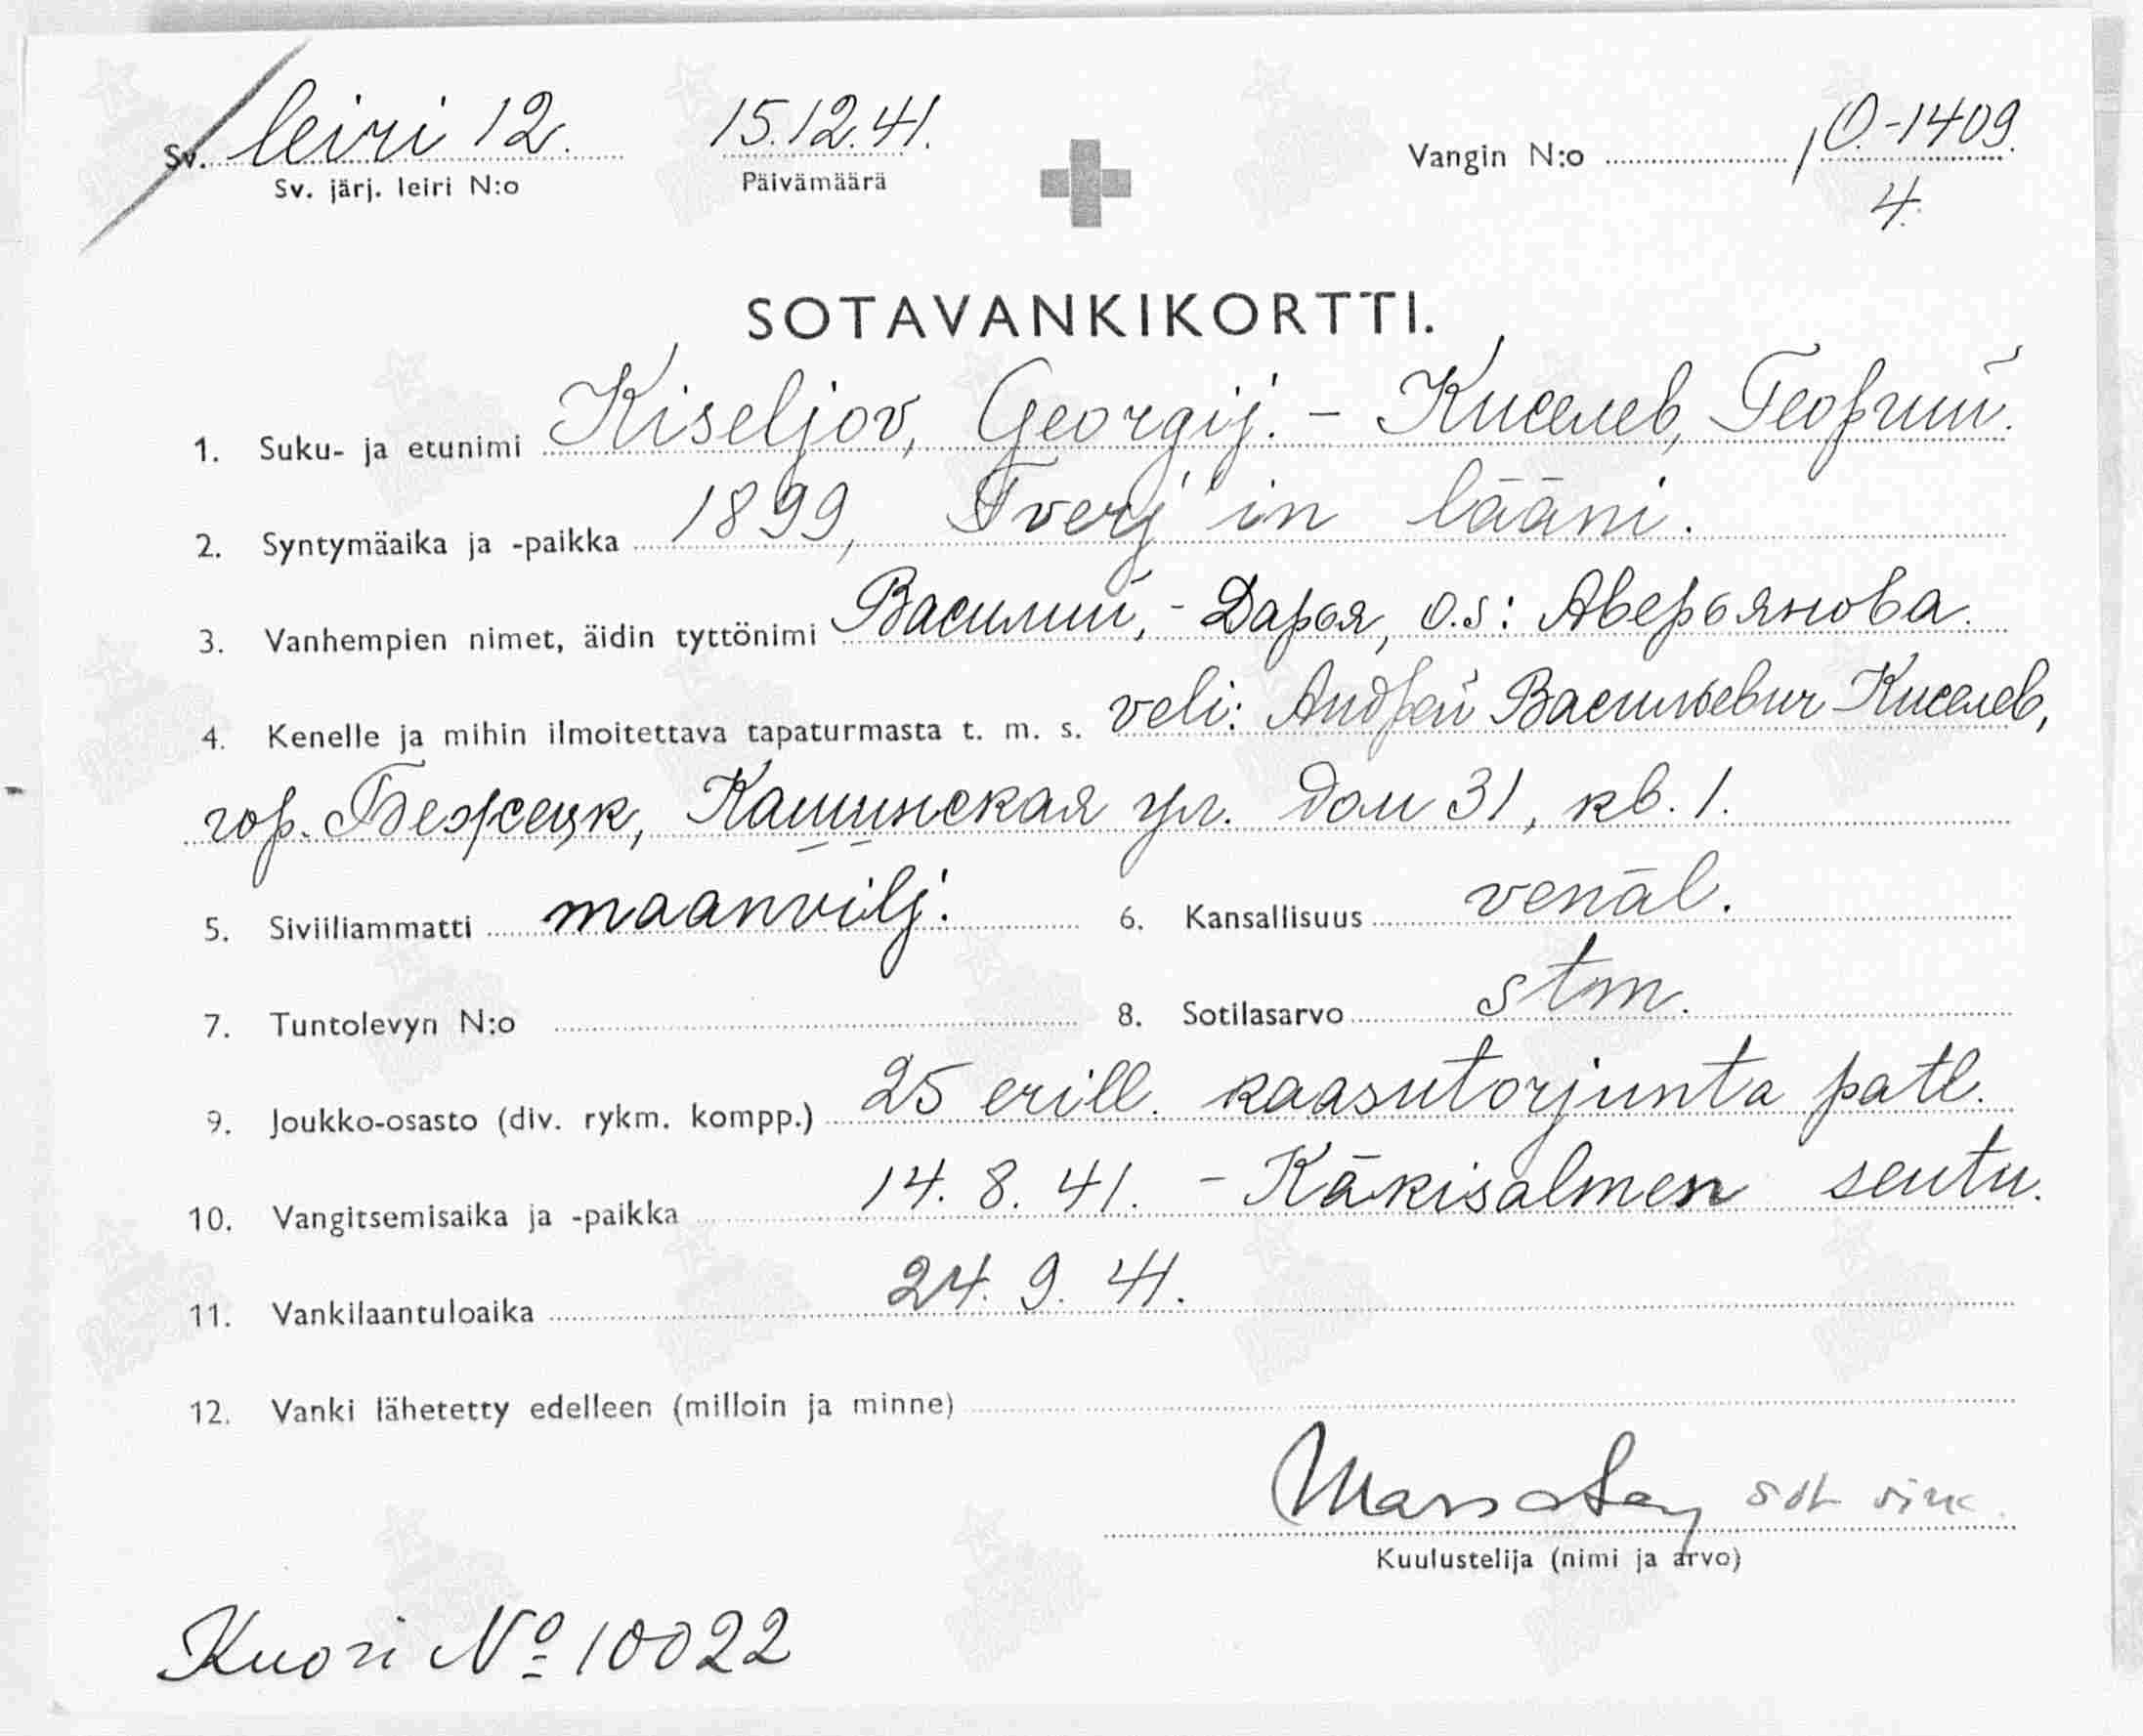 Sv. leiri 12. 15.12.41. Vangin N:o 10-1409.
Sv. järj. leiri N:o Päivämäärä 4.
SOTAVANKIKORTTI.
1. Suku- ja etunimi Kiseljov, Georgij. - Киселев, Георгий.
2. Syntymäaika ja -paikka 1899, Tverj'in lääni.
3. Vanhempien nimet, äidin tyttönimi Василий, - Дарья, o.s: Аверьянова.
4. Kenelle ja mihin ilmoitettava tapaturmasta t. m. s. veli: Андрей Васильевич Киселев,
гор. Бежецк, Кашинская ул. дом 31, кв. 1.
5. Siviiliammatti maanvilj. 6. Kansallisuus venäl.
7. Tuntolevyn N:o 8. Sotilasarvo stm.
9. Joukko-osasto (div. rykm. kompp.) 25 erill. kaasutorjunta patl.
10. Vangitsemisaika ja -paikka 14. 8. 41. - Käkisalmen seutu.
11. Vankilaantuloaika 24. 9. 41.
12. Vanki lähetetty edelleen (milloin ja minne)
sot
Kuulustelija (nimi ja arvo)
Kuori № 10022